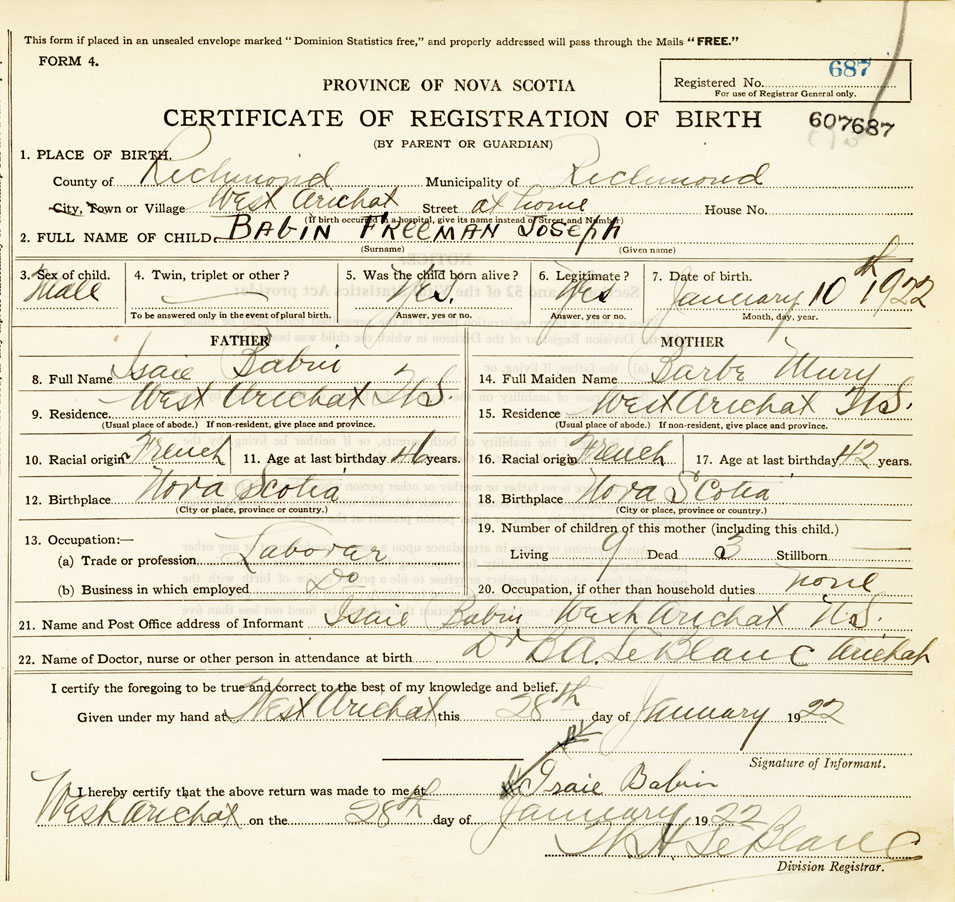 This form if placed in an unsealed envelope marked "Dominion Statistics free," and properly addressed will pass through the Mails "FREE."
FORM 4.
PROVINCE OF NOVA SCOTIA
Registered No. 687
For use of Registrar General only.
CERTIFICATE OF REGISTRATION OF BIRTH
607687
(BY PARENT OR GUARDIAN)
1. PLACE OF BIRTH.
County of Richmond Municipality of Richmond
City, Town or Village West Arichat Street at home House No.
(If birth occurred in a hospital, give its name instead of Street and Number)
2. FULL NAME OF CHILD. BABIN FREEMAN JOSEPH
(Surname) (Given name)
3. Sex of child. Male
4. Twin, triplet or other ?
To be answered only in the event of plural birth.
5. Was the child born alive ? Yes.
Answer, yes or no.
6. Legitimate ? Yes
Answer, yes or no.
7. Date of birth. January 10th 1922
Month, day, year.
FATHER
8. Full Name Isaie Babin
9. Residence. West Arichat N.S.
(Usual place of abode.) If non-resident, give place and province.
10. Racial origin French 11. Age at last birthday 46 years.
12. Birthplace Nova Scotia
(City or place, province or country.)
13. Occupation:—
(a) Trade or profession Laborar
(b) Business in which employed Do
MOTHER
14. Full Maiden Name Barbe Mury
15. Residence West Arichat N.S.
(Usual place of abode.) If non-resident, give place and province.
16. Racial origin French 17. Age at last birthday 42 years.
18. Birthplace Nova Scotia
(City or place, province or country.)
19. Number of children of this mother (including this child.)
Living 9 Dead 3 Stillborn
20. Occupation, if other than household duties none
21. Name and Post Office address of Informant Isaie Babin West Arichat N.S.
22. Name of Doctor, nurse or other person in attendance at birth Dr B.A. Le Blanc Arichat
I certify the foregoing to be true and correct to the best of my knowledge and belief.
Given under my hand at West Arichat this 28th day of January 1922
Signature of Informant.
I hereby certify that the above return was made to me at Isaie Babin
West Arichat on the 28th day of January 1922
Le Blanc
Division Registrar.